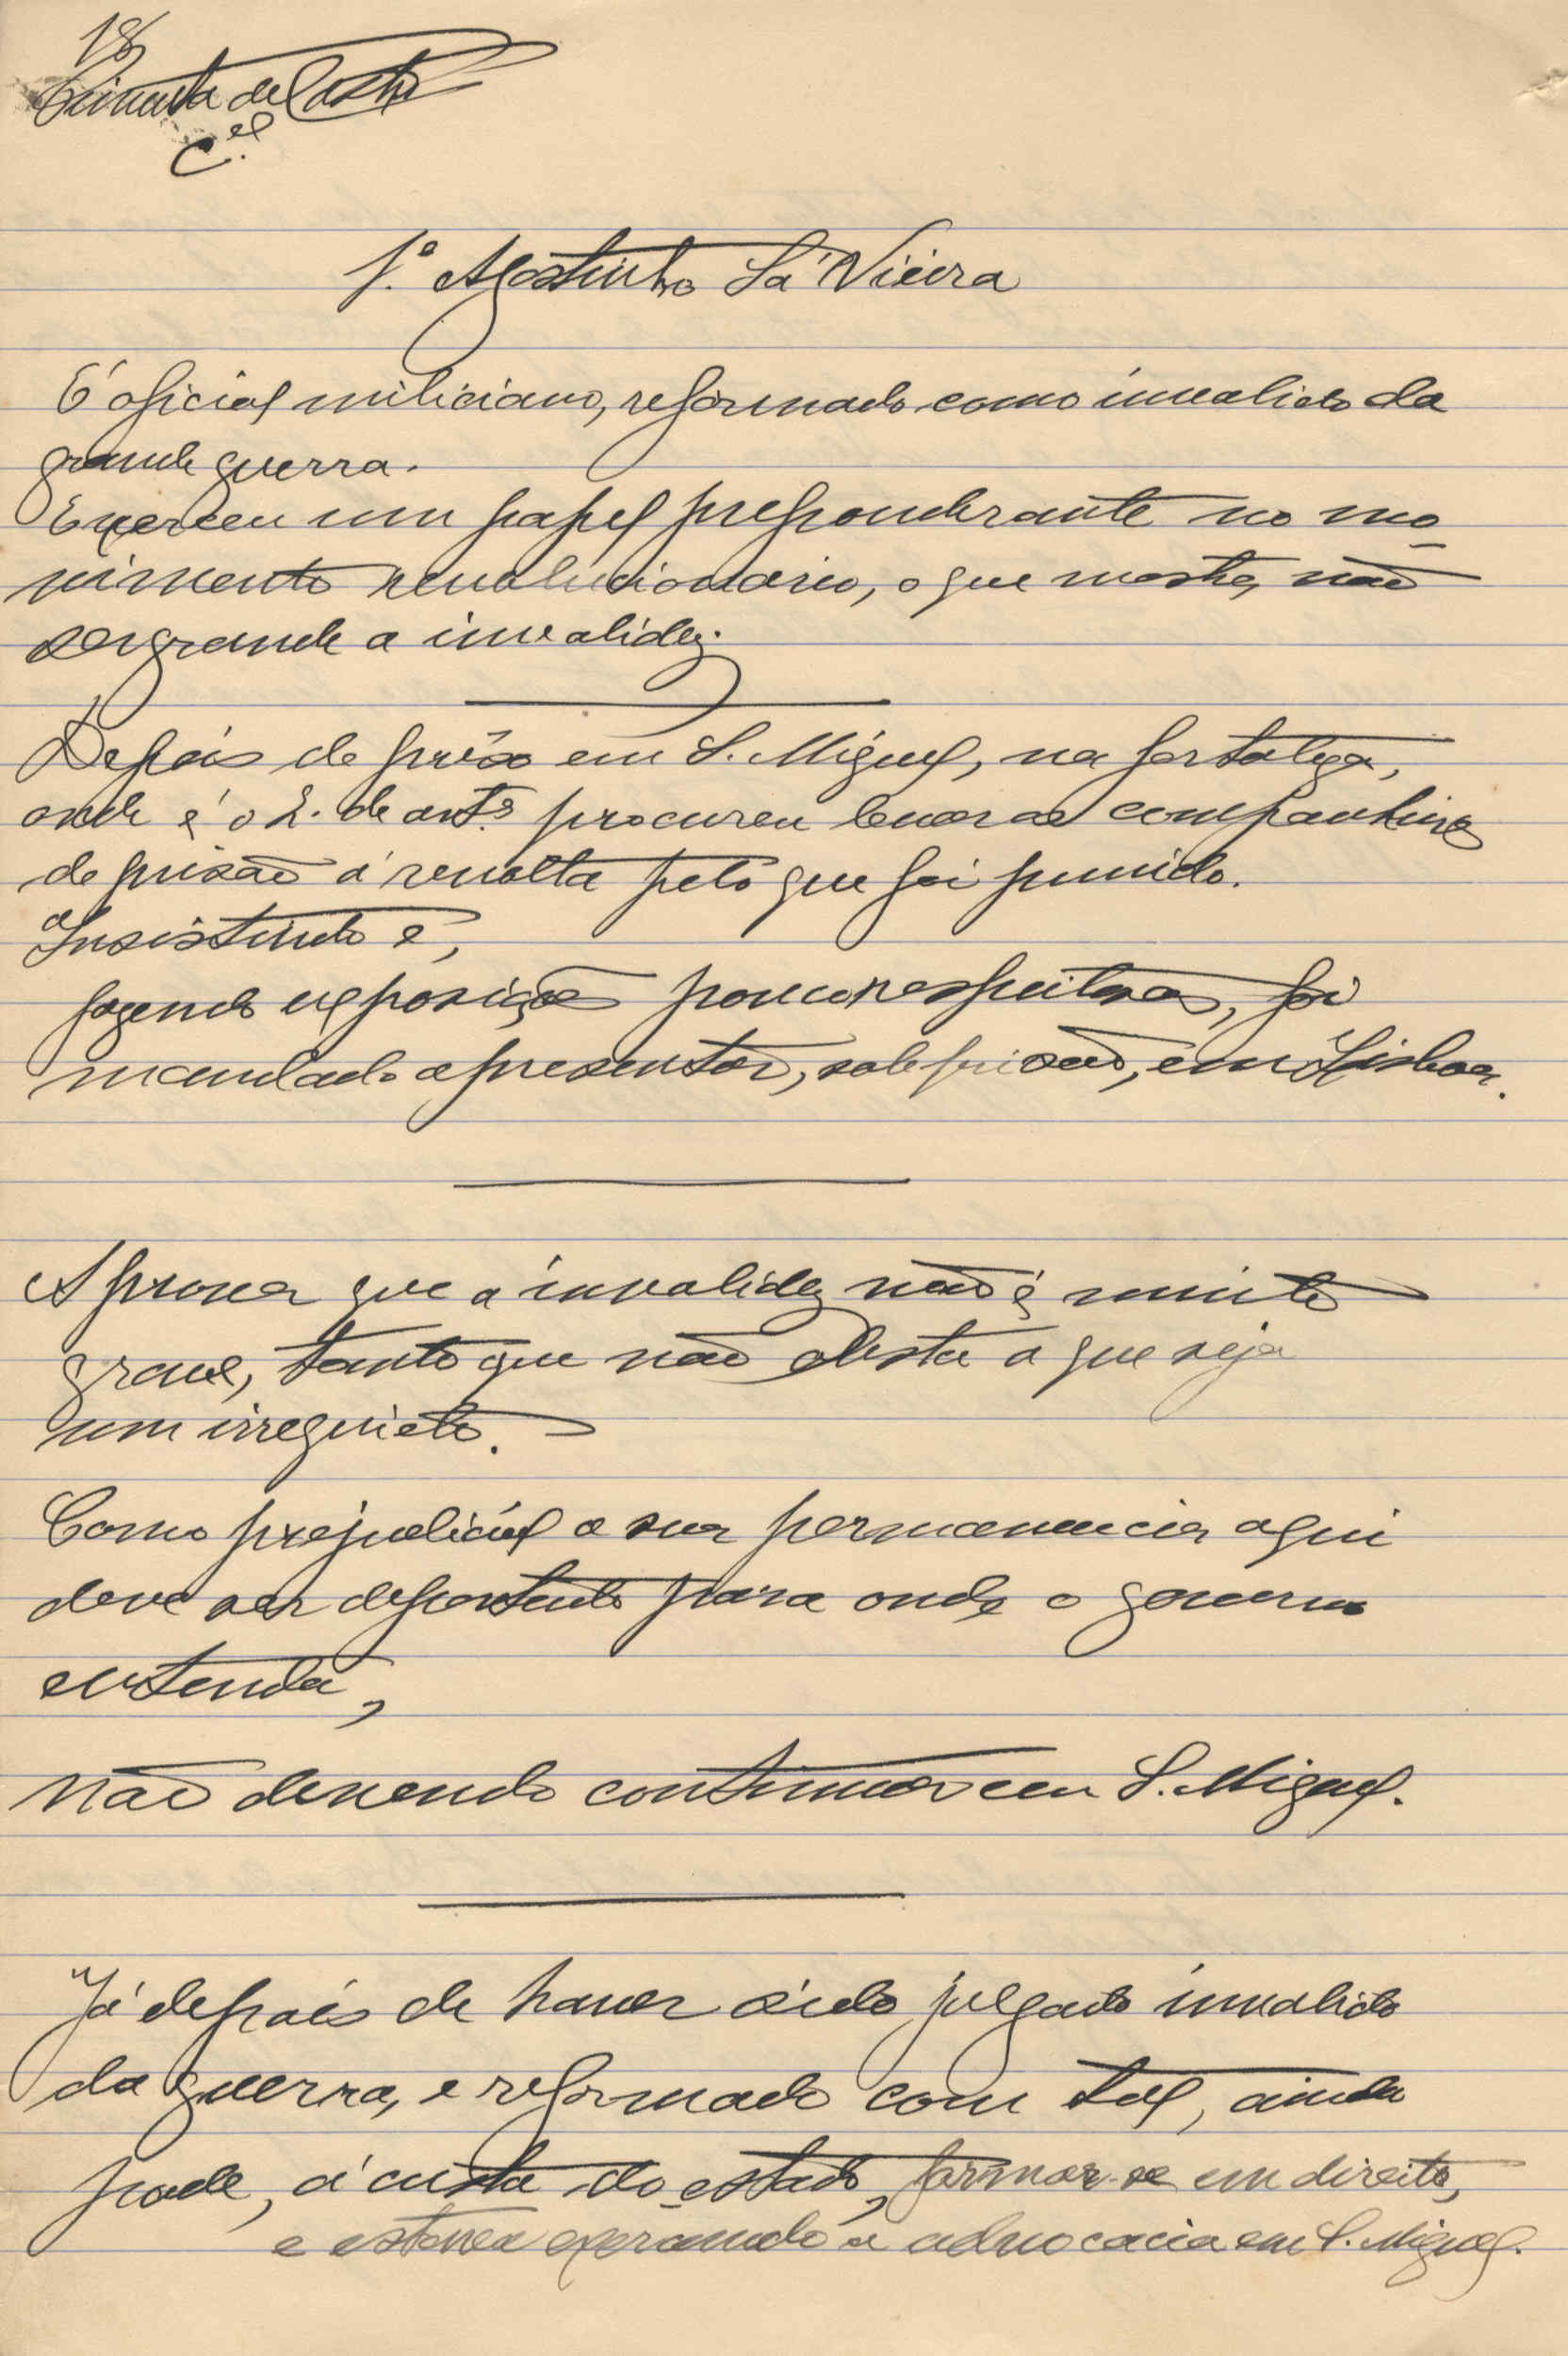 18
Pimenta de Castro
C.el
1.º Agostinho Sá Vieira
É oficial miliciano, reformado como invalido da
grande guerra.
Exerceu um papel preponderante no mo_
vimento revolucionario, o que mostra não
ser grande a invalidez.
Depois de prêso em S. Miguel, na fortaleza,
onde é o 2. de art.ª procurou levar os companheiros
de prisão á revolta pelo que foi punido.
Insistindo e,
fazendo exposições pouco respeitosas, foi
mandado apresentar, sob prisão, em Lisboa.
A prova que a invalidez não é muito
grave, tanto que não obsta a que seja
um irrequieto.
Como prejudicial a sua permanencia aqui
deve ser deportado para onde o governo
entenda,
não devendo continuar em S. Miguel.
Já depois de haver sido julgado invalido
da guerra, e reformado com tal, ainda
poude, á custa do estado, formar-se em direito,
e estava exercendo a advocacia em S. Miguel.